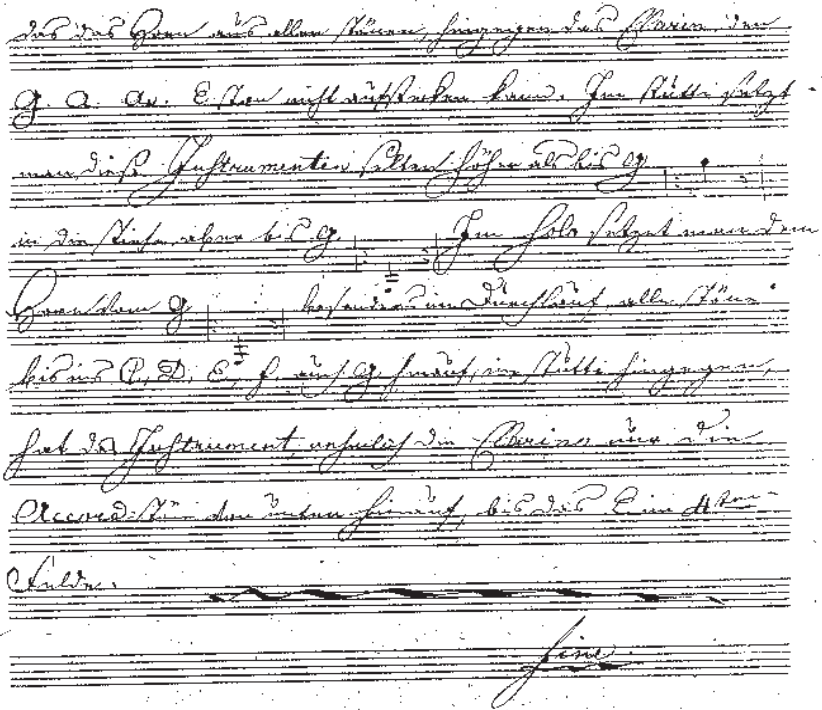 das das Horn aus allen Tönen, hingegen das Clarin den
G. A. As. E ton nicht aufstecken kann. Im Tutti setzt
man diese Instrumenten selten höher als bis G
in die Tiefe aber bis G. Im Solo setzet man dem
Horn vom G besonders im Durchlauf alle Töne
bis ins C, D, E, f, auch G hinauf, im Tutti hingegen,
hat das Instrument, nehmlich die Clarino nur die
Accord Töne von unten hinauf, bis das E im 4ten
Felde.
Fine